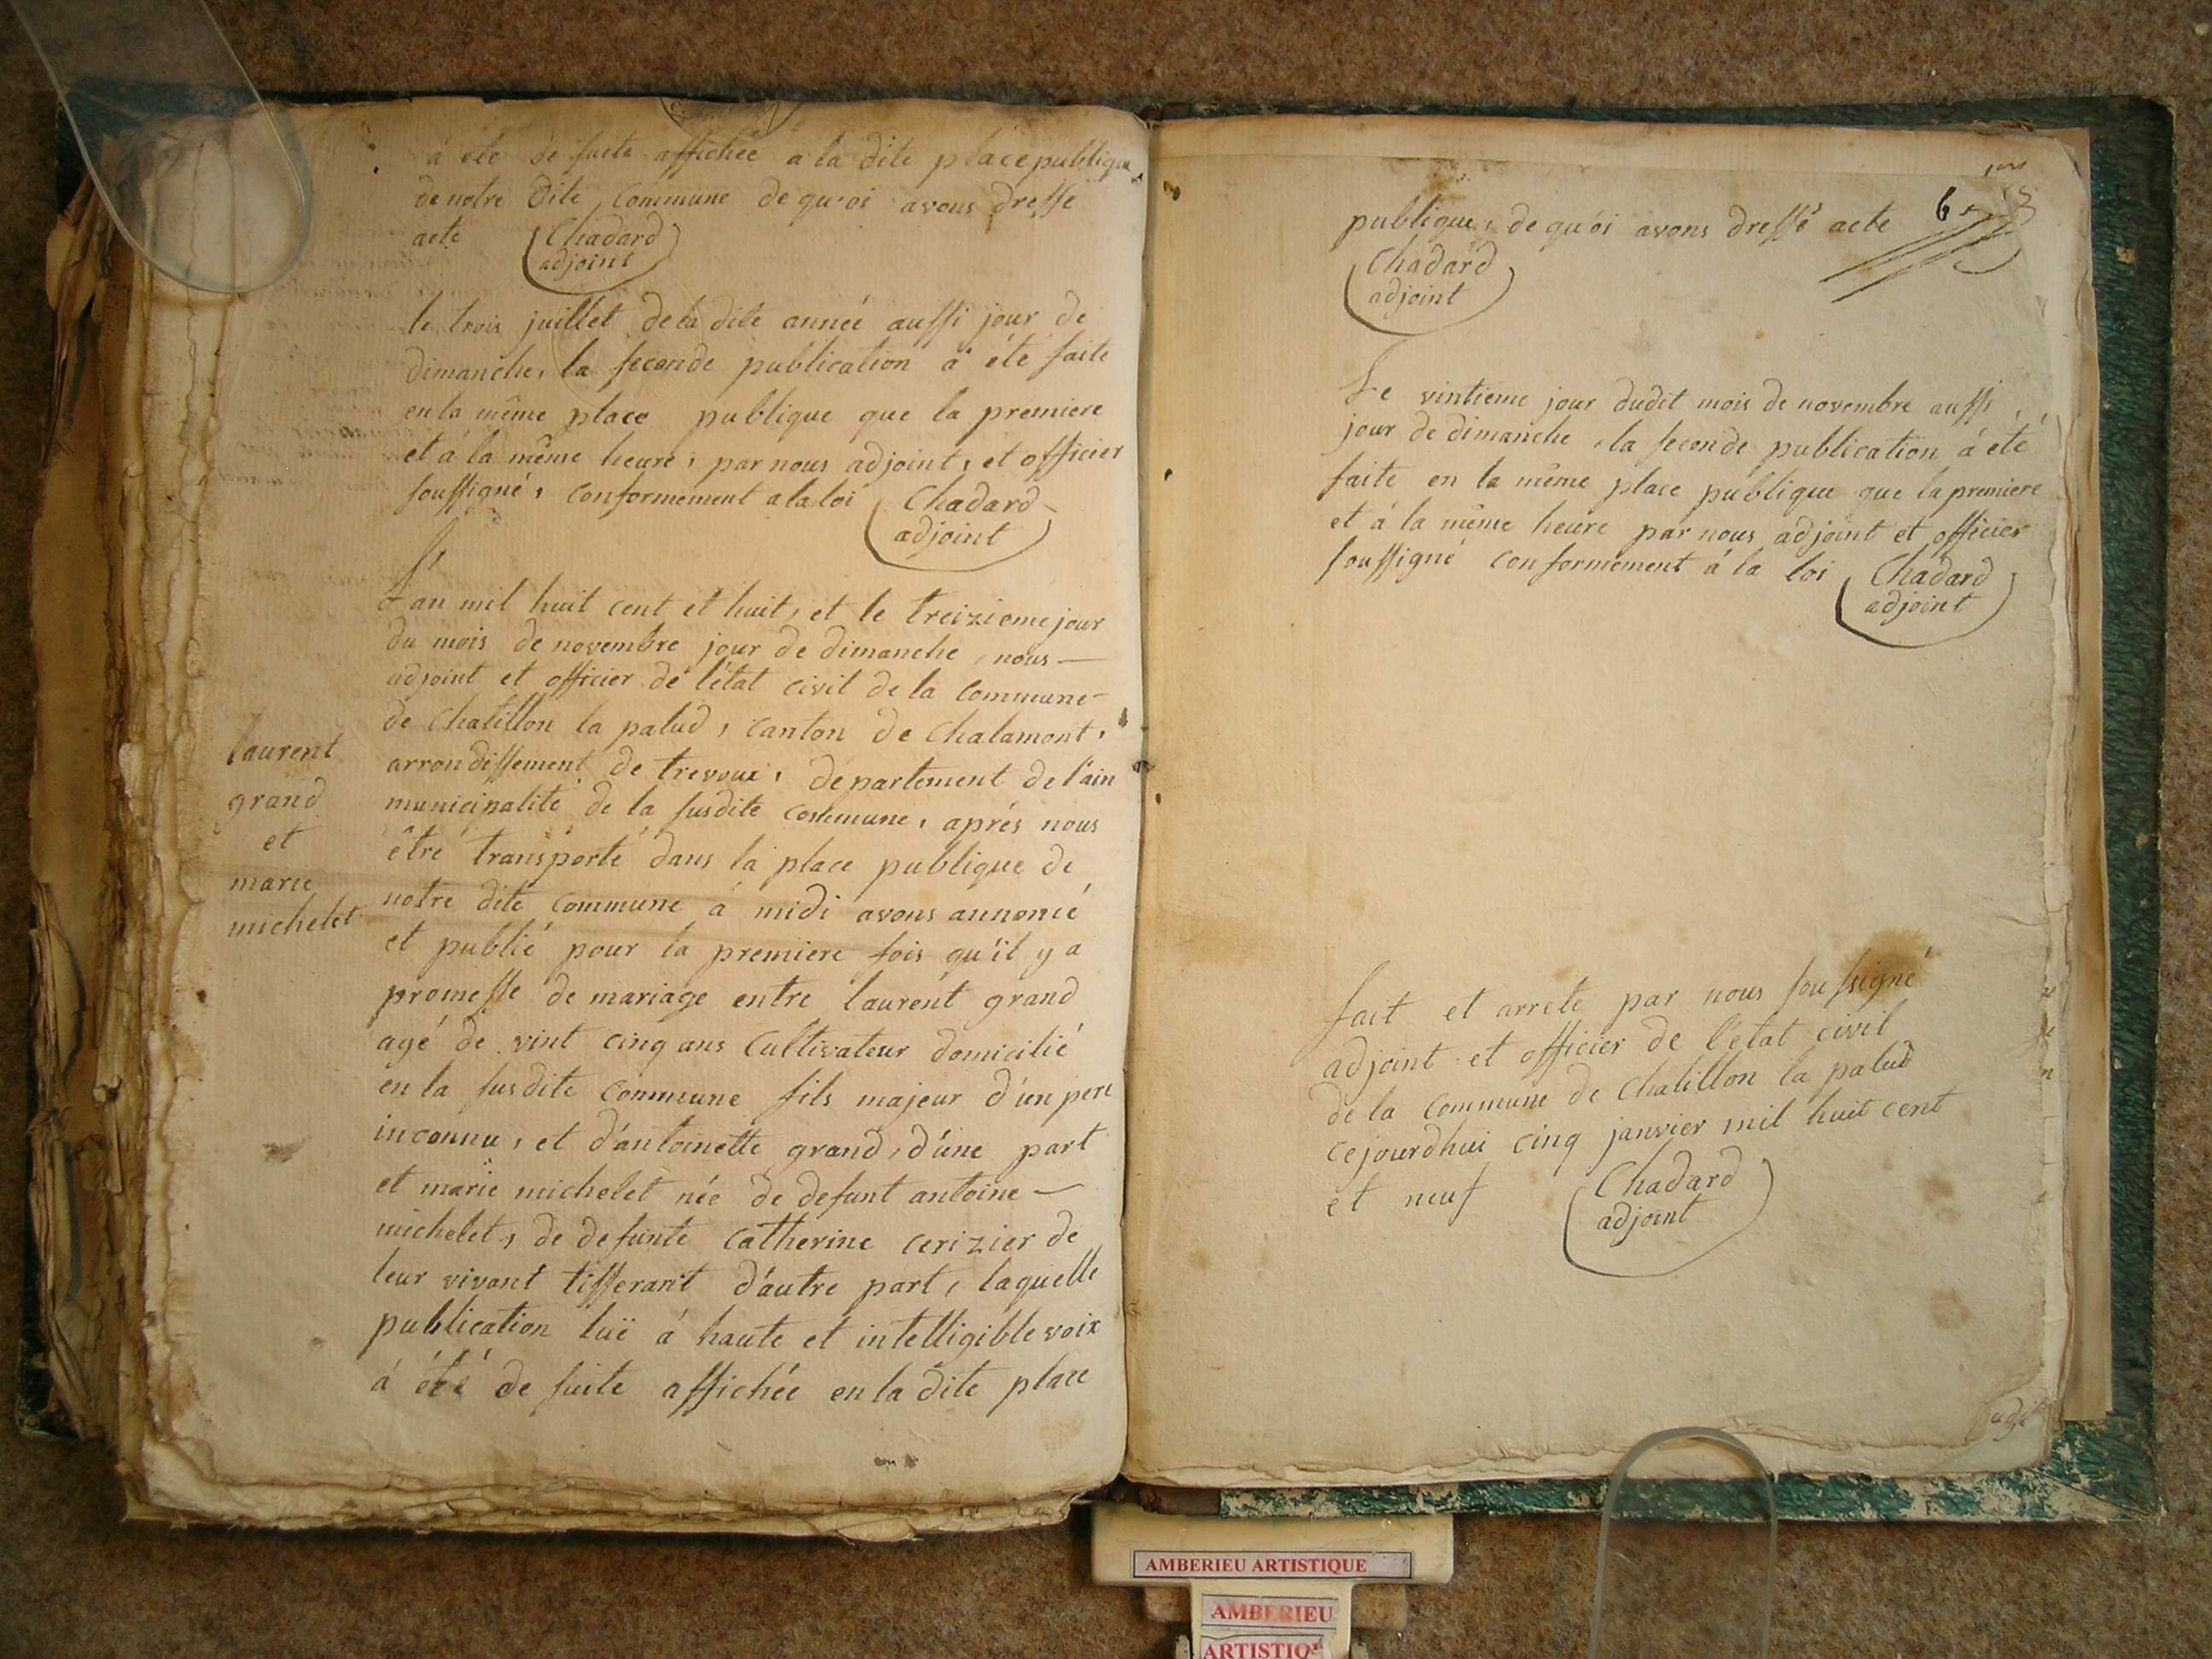 á été de suite affichée a la dite place publique
de notre dite commune de qu'oi avons dressé
acte Chadard
adjoint
le trois juillet de la dite année aussi jour de
dimanche, la seconde publication á été faite
en la même place publique que la premiere
et á la même heure, par nous adjoint, et officier
soussigné, conformement a la loi Chadard
adjoint
L'an mil huit cent et huit, et le treizieme jour
du mois de novembre jour de dimanche, nous —
adjoint et officier de l'état civil de la commune
de Chatillon la palud, canton de Chalamont,
arrondissement de trevoux, département de l'ain
municipalité de la susdite commune, aprés nous
être transporté dans la place publique de
notre dite commune á midi avons annoncé
et publié pour la premiere fois qu'il y a
promesse de mariage entre laurent grand
agé de vint cinq ans Cultivateur domicilié
en la susdite commune fils majeur d'un pere
inconnu, et d'antoinette grand, d'une part
et marie michelet née de defunt antoine —
michelet, de defunte catherine cerizier de
leur vivant tisserant d'autre part, laquelle
publication luë á haute et intelligible voix
á été de suite affichée en la dite place
laurent
grand
et
marie
michelet
publique, de qu'oi avons dressé acte
6
Chadard
adjoint
Le vintieme jour dudit mois de novembre aussi
jour de dimanche, la seconde publication á été
faite en la même place publique que la premiere
et á la même heure par nous adjoint et officier
soussigné conformement á la loi Chadard
adjoint
fait et arreté par nous soussigné
adjoint et officier de l'état civil
de la commune de Chatillon la palud
cejourdhui cinq janvier mil huit cent
et neuf Chadard
adjoint
AMBERIEU ARTISTIQUE
AMBERIEU